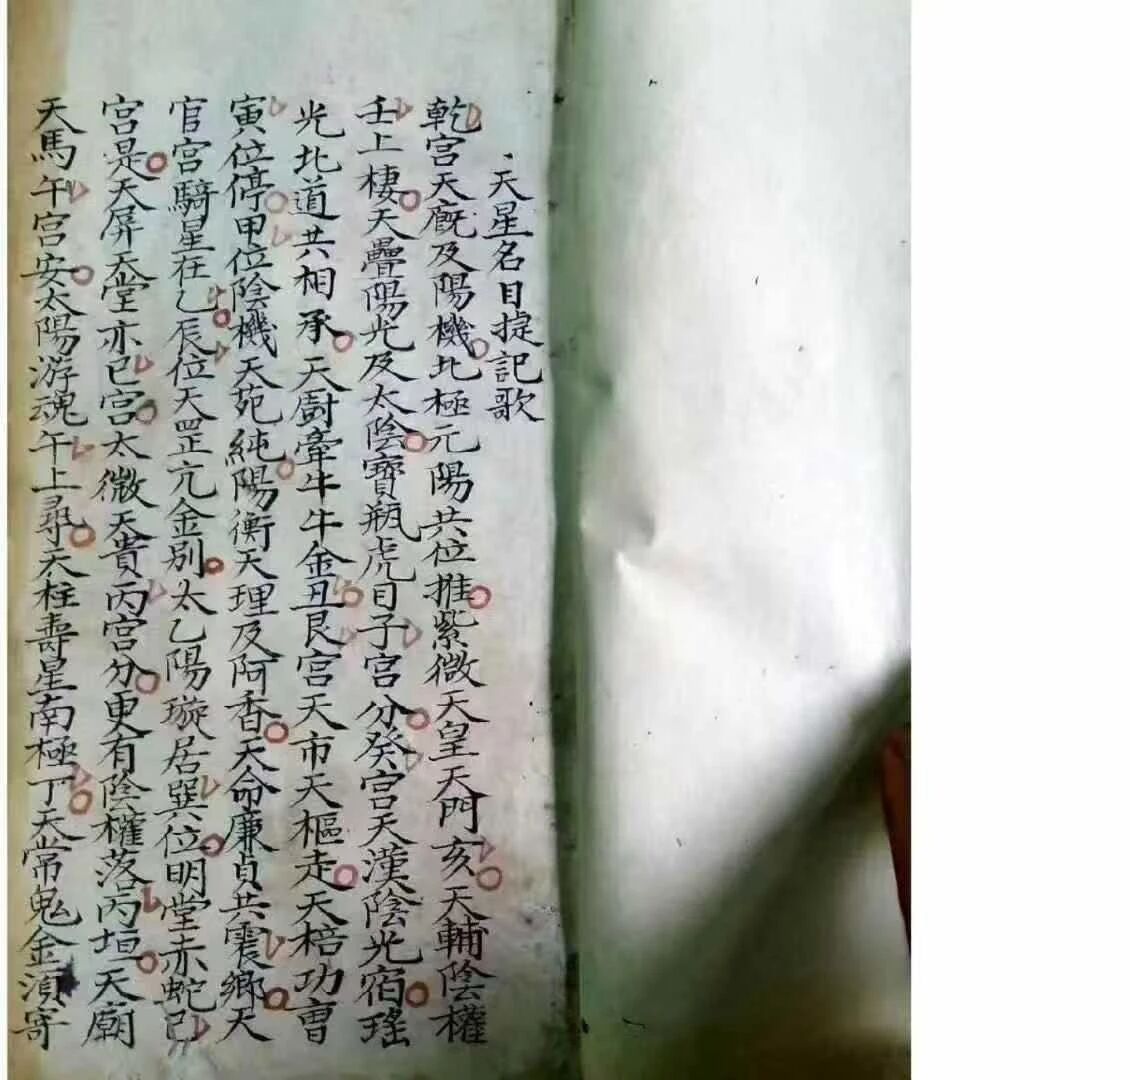 天星名目掟記歌
乾宮天廐及陽機北極元陽共位推紫微天皇天門亥天輔陰權
壬上棲天疊陽光及太陰寶瓶虎日子宮分癸宮天漢陰光宿瑤
光北道共相承天廚牽牛牛金丑艮宮天市天樞走天棓功曺
寅位停甲位陰機天苑純陽衡天理及阿香天命廉貞共震鄉天
官宮騎星在乙辰位天罡亢金别太乙陽璇居巽位明堂赤蛇巳
宮是天屏天堂亦巳宮太微天貴丙宮分更有陰權落丙垣天廟
天馬午宮安太陽游魂午上尋天柱壽星南極丁天常鬼金湏寄